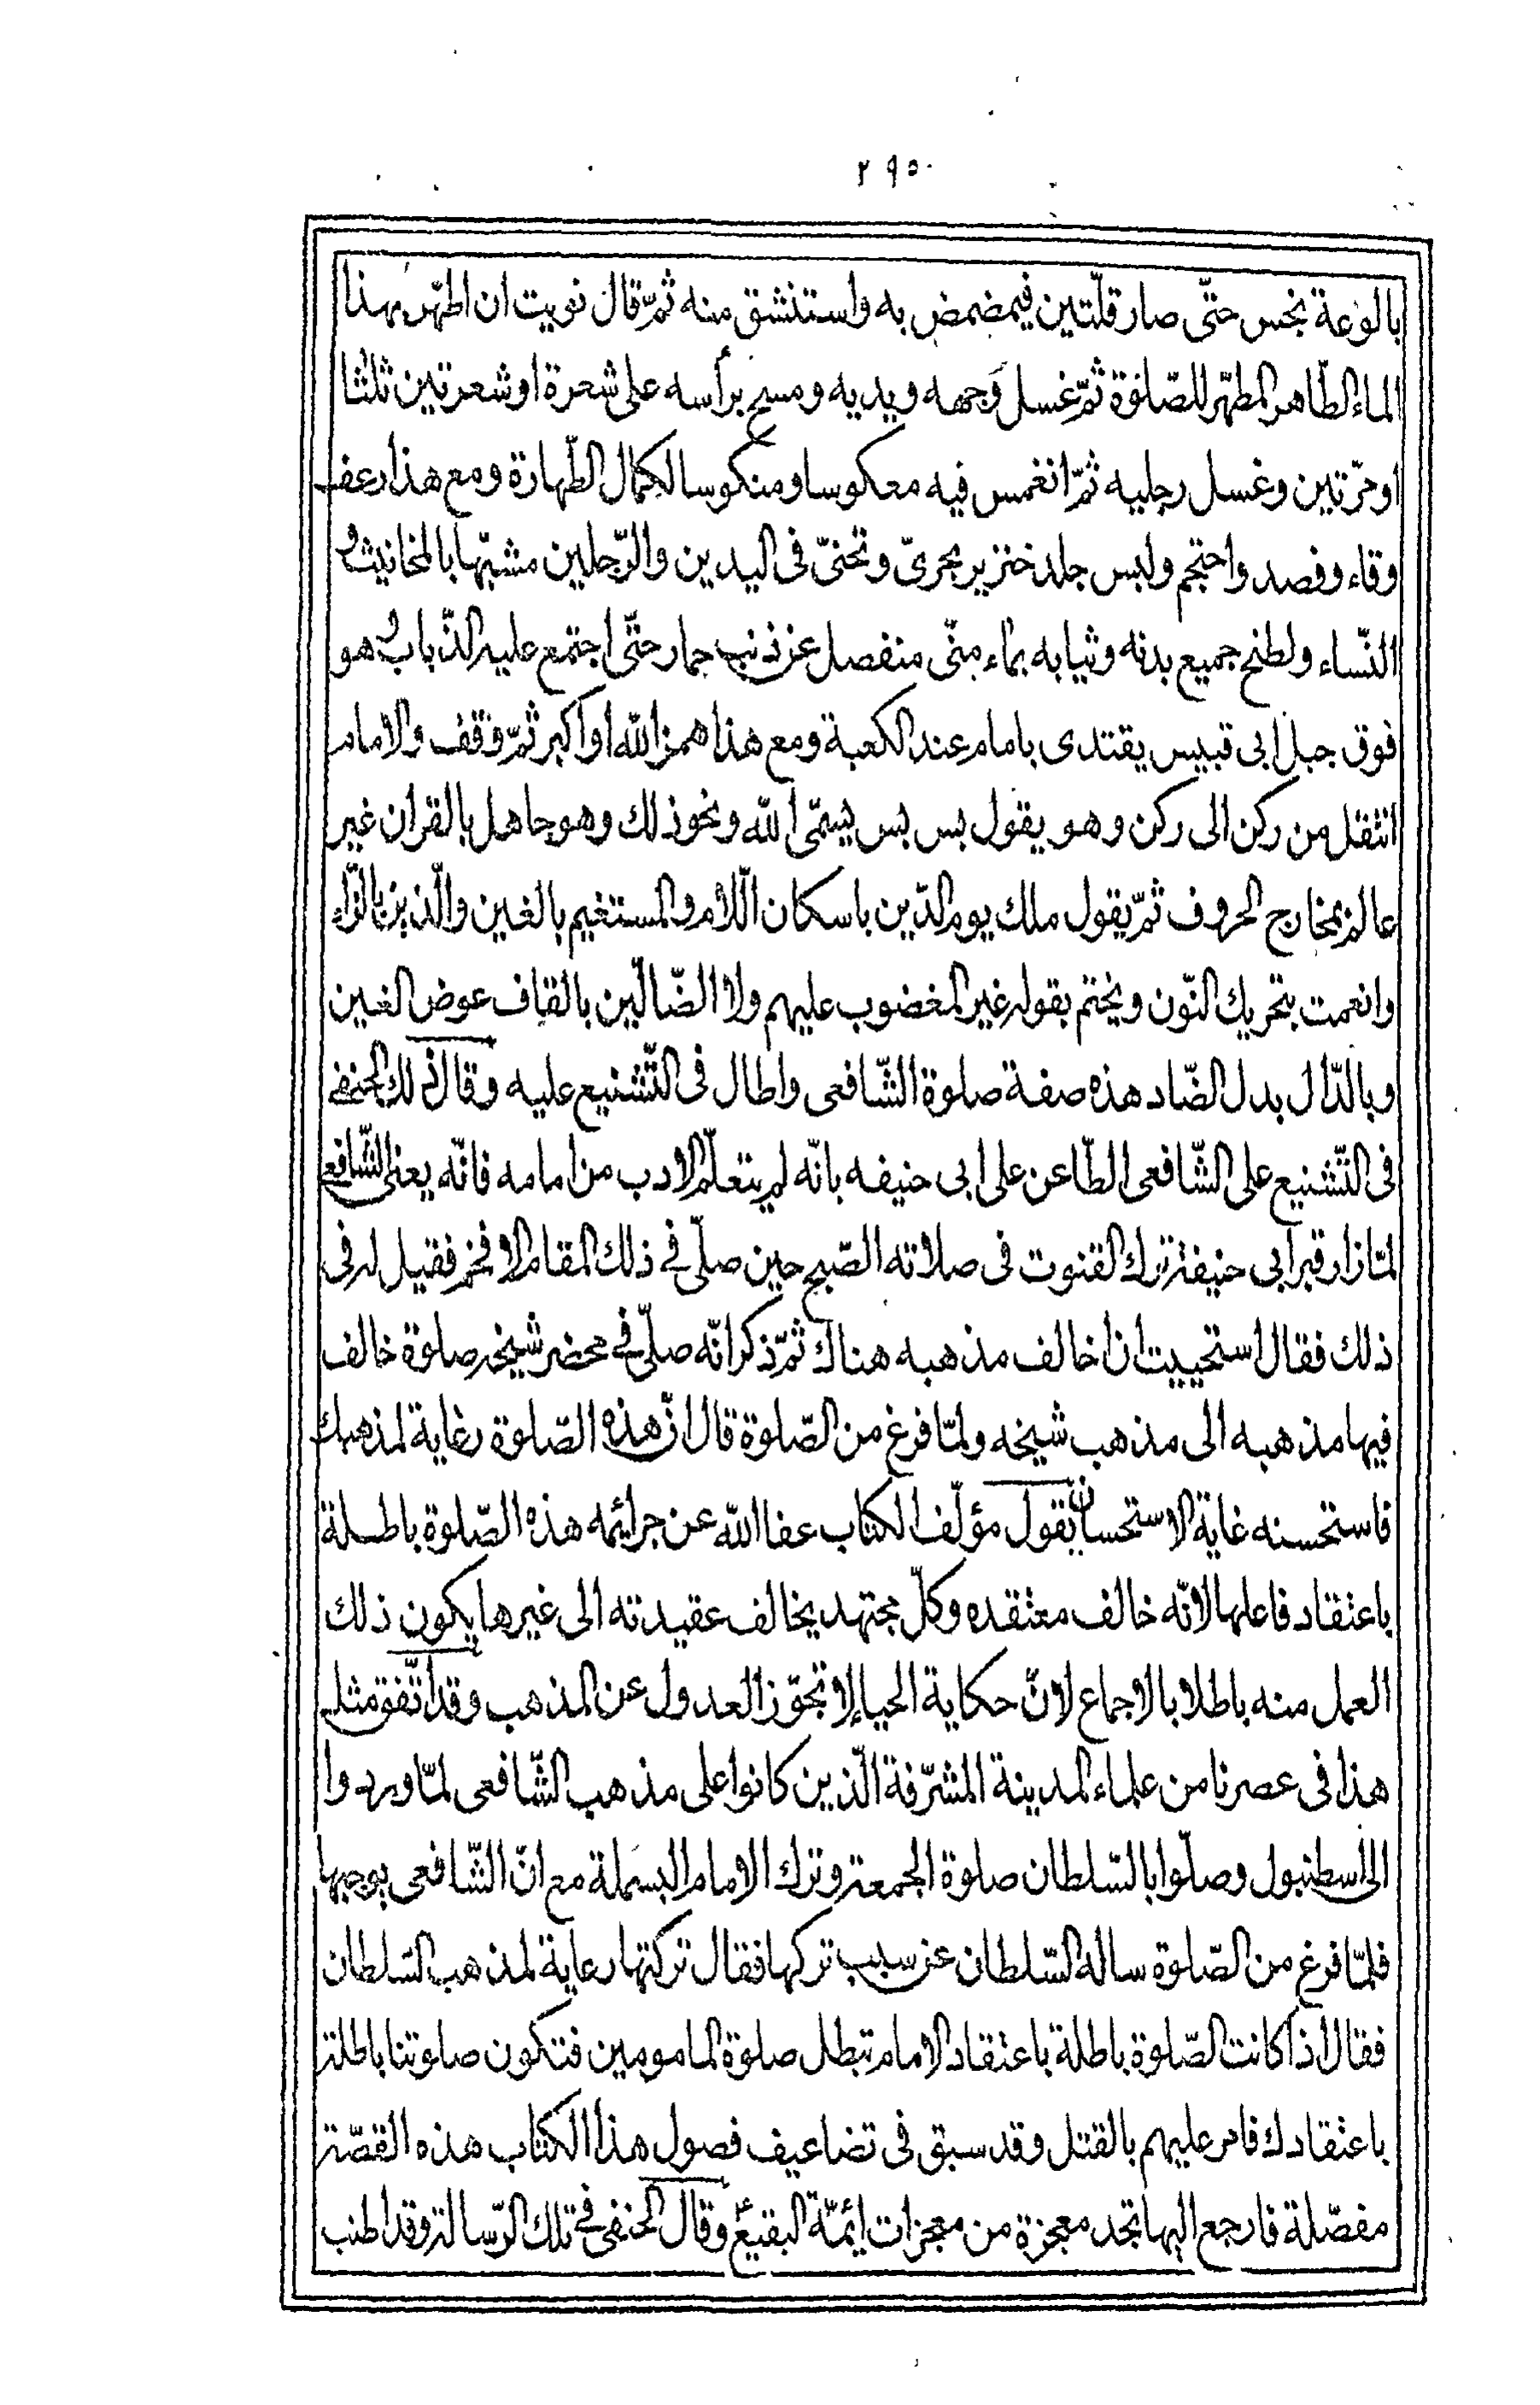 ٢٩٥
بالوعة نجس حتّى صار قلّتين فيمضمض به واستنشق منه ثمّ قال نويت ان اطهّر بهذا
الماء الطّاهر المطهّر للصّلوة ثمّ غسل وجهه ويديه ومسح برأسه على شعرة او شعرتين ثلثا
او مرّتين وغسل رجليه ثمّ انغمس فيه معكوسا ومنكوسا لكمال الطّهارة ومع هذا رعف
وقاء وفصد واحتجم ولبس جلد خنزير بحرىّ وتحنىّ فى اليدين والرّجلين مشبّها بالمخانيث و
النّساء ولطخ جميع بدنه وثيابه بماء منّى منفصل عن ذنب حمار حتّى اجتمع عليه الذّباب و هو
فوق جبل ابى قبيس يقتدى بامام عند الكعبة ومع هذا همز الله او اكبر ثمّ وقف والامام
انتقل من ركن الى ركن وهو يقول بس بس يسمّى الله ونحو ذلك وهو جاهل بالقران غير
عالم بمخارج الحروف ثمّ يقول ملك يوم الدّين باسكان اللّام والمستغيم بالغين والّذين بالزّاء
وانعمت بتحريك النّون ويختم بقوله غير المغضوب عليهم ولا الضّالّين بالقاف عوض الغين
وبالدّال بدل الضّاد هذه صفة صلوة الشّافعى واطال فى التّشنيع عليه وقال ذلك الحنفى
فى التّشنيع على الشّافعى الطّاعن على ابى حنيفه بانّه لم يتعلّم الادب من امامه فانّه يعنى الشّافعى
لمّا زار قبر ابى حنيفة ترك القنوت فى صلاته الصّبح حين صلّى فى ذلك المقام الافخم فقيل له فى
ذلك فقال استحييت ان اخالف مذهبه هناك ثمّ ذكر انّه صلّى فى محضر شيخه صلوة خالف
فيها مذهبه الى مذهب شيخه ولمّا فرغ من الصّلوة قال انّ هذه الصّلوة رعاية لمذهبك
فاستحسنه غاية الاستحسان يقول مؤلّف الكتاب عفا الله عن جرائمه هذه الصّلوة باطلة
باعتقاد فاعلها لانّه خالف معتقده وكلّ مجتهد يخالف عقيدته الى غيرها يكون ذلك
العمل منه باطلا بالاجماع لانّ حكاية الحياء لا تجوّز العدول عن المذهب وقد اتّفق مثل
هذا فى عصرنا من علماء المدينة المشرّفة الّذين كانوا على مذهب الشّافعى لمّا وردوا
الى اسطنبول وصلّوا بالسّلطان صلوة الجمعة وترك الامام البسملة مع انّ الشّافعى يوجبها
فلمّا فرغ من الصّلوة ساله السّلطان عن سبب تركها فقال تركتها رعاية لمذهب السّلطان
فقال اذا كانت الصّلوة باطلة باعتقاد الامام تبطل صلوة المامومين فتكون صلوتنا باطلة
باعتقادك فامر عليهم بالقتل وقد سبق فى تضاعيف فصول هذا الكتاب هذه القصّة
مفصّلة فارجع اليها تجد معجزة من معجزات ائمّة البقيع ع وقال الحنفى فى تلك الرّسالة وقد اطنب